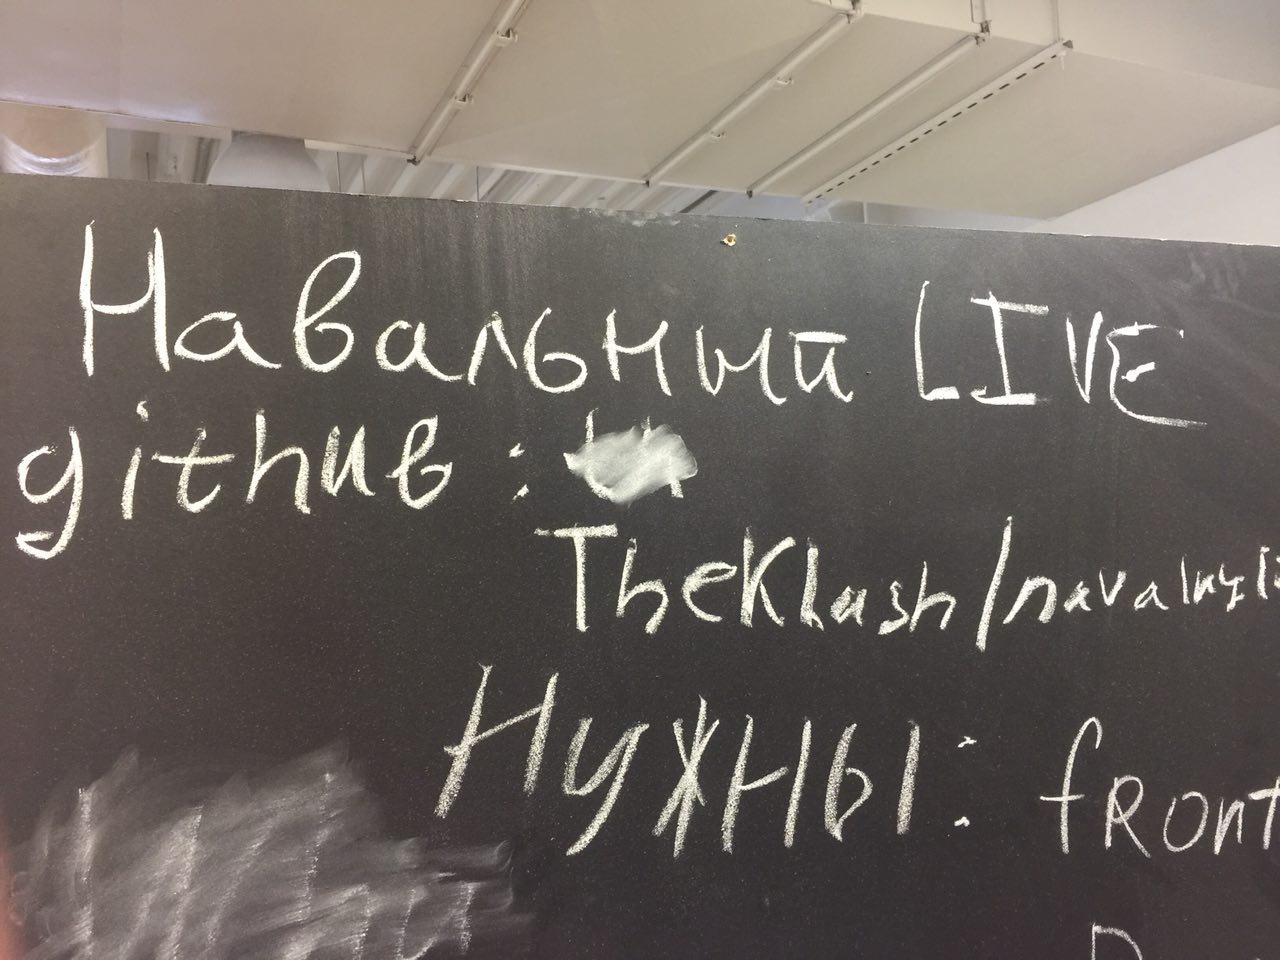 Навальный LIVE
github:
TheKlash/navalnyli
Нужны: front